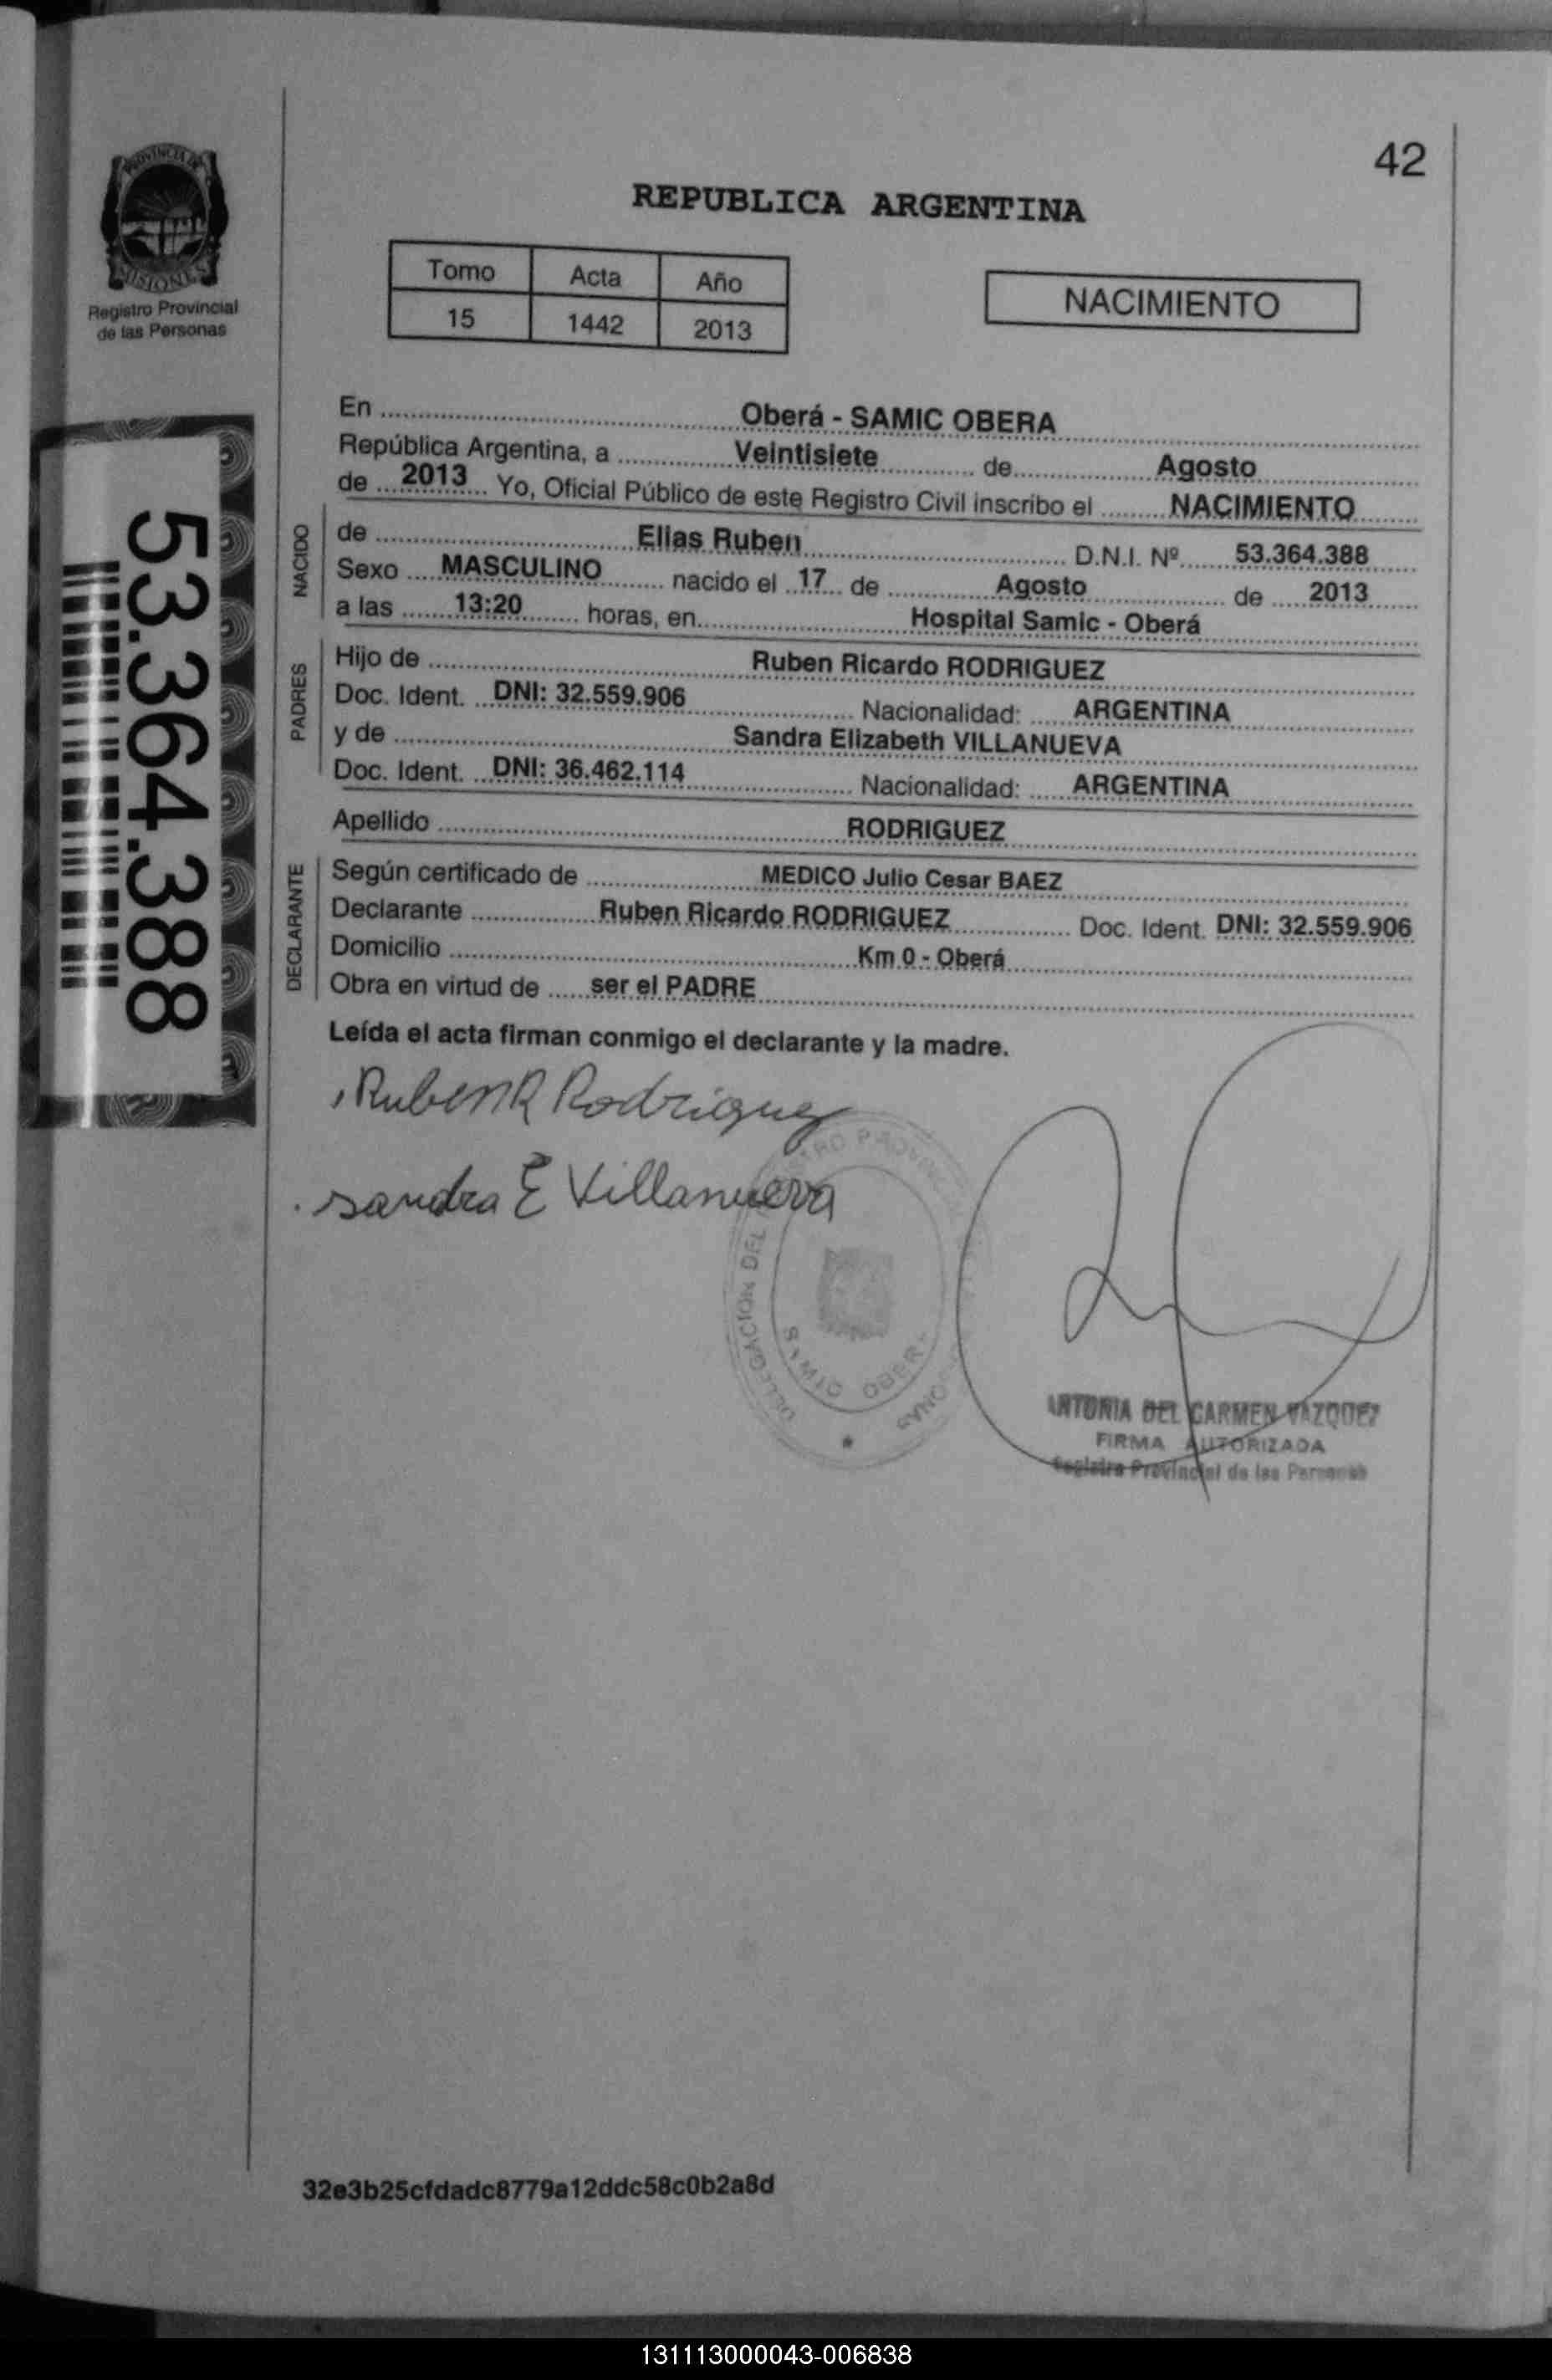 42
PROVINCIA DE
MISIONES
Registro Provincial
de las Personas
REPUBLICA ARGENTINA
Tomo Acta Año
15 1442 2013
NACIMIENTO
53.364.388
En Oberá - SAMIC OBERA
República Argentina, a Veintisiete de Agosto
de 2013 Yo, Oficial Público de este Registro Civil inscribo el NACIMIENTO
NACIDO
de Elias Ruben D.N.I. Nº 53.364.388
Sexo MASCULINO nacido el 17 de Agosto de 2013
a las 13:20 horas, en Hospital Samic - Oberá
PADRES
Hijo de Ruben Ricardo RODRIGUEZ
Doc. Ident. DNI: 32.559.906 Nacionalidad: ARGENTINA
y de Sandra Elizabeth VILLANUEVA
Doc. Ident. DNI: 36.462.114 Nacionalidad: ARGENTINA
Apellido RODRIGUEZ
DECLARANTE
Según certificado de MEDICO Julio Cesar BAEZ
Declarante Ruben Ricardo RODRIGUEZ Doc. Ident. DNI: 32.559.906
Domicilio Km 0 - Oberá
Obra en virtud de ser el PADRE
Leída el acta firman conmigo el declarante y la madre.
Ruben R Rodriguez
sandra E Villanueva
DELEGACION DEL
DEL CARMEN VAZQUEZ
FIRMA AUTORIZADA
Registro Provincial de las Personas
32e3b25cfdadc8779a12ddc58c0b2a8d
131113000043-006838